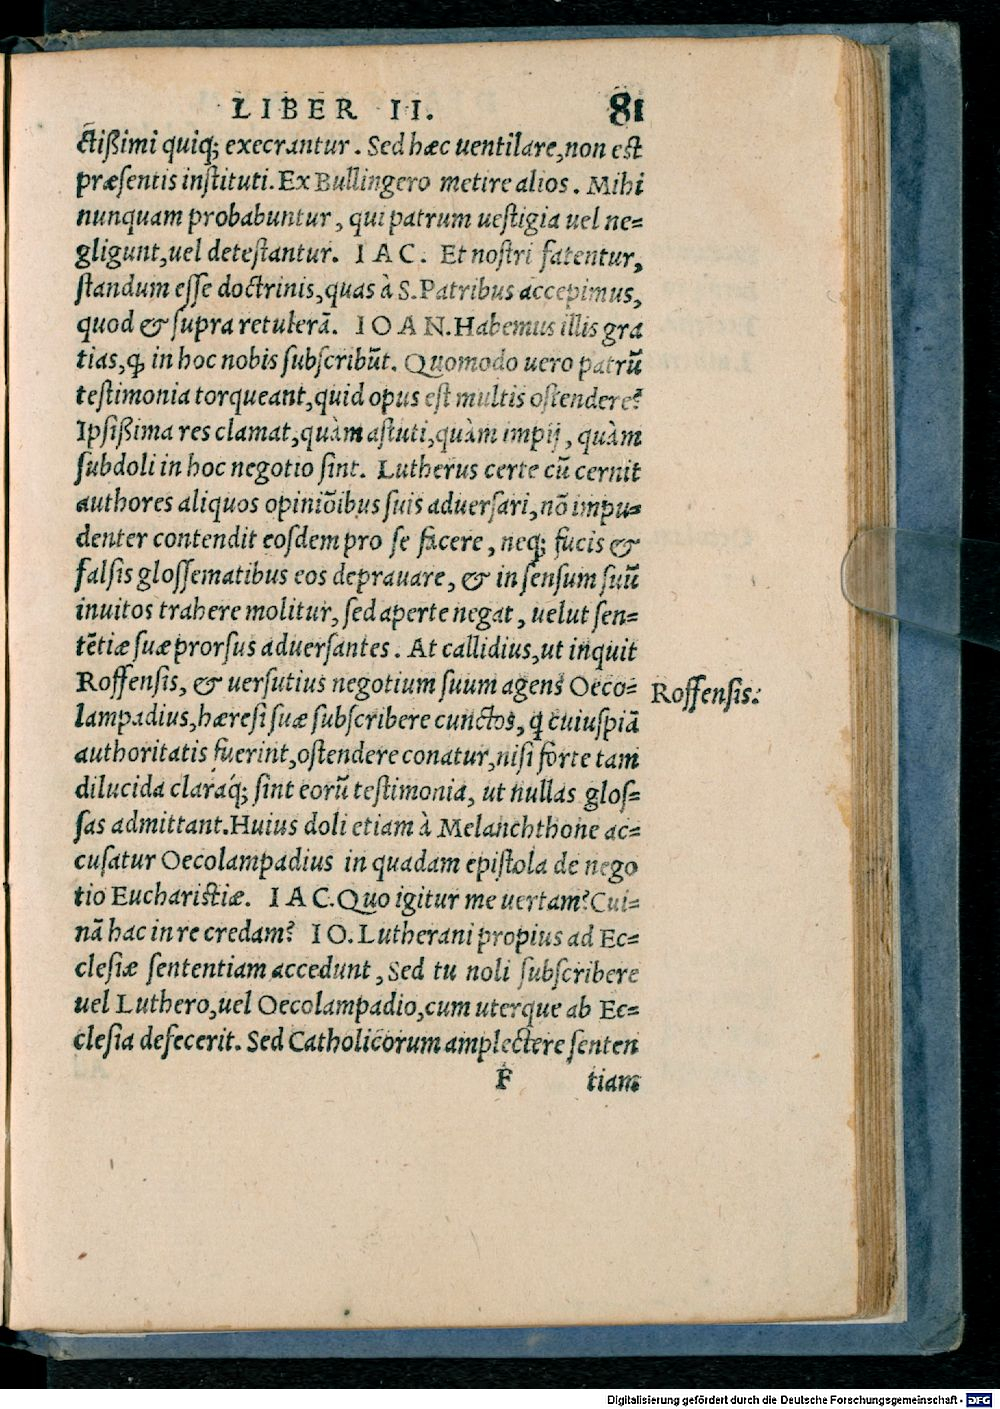 LIBER II. 81
ctißimi quiq; execrantur. Sed hæc uentilare, non est
præsentis instituti. Ex Bullingero metire alios. Mihi
nunquam probabuntur, qui patrum uestigia uel ne=
gligunt, uel detestantur. IAC. Et nostri fatentur,
standum esse doctrinis, quas à S. Patribus accepimus,
quod & supra retulerã. IOAN. Habemus illis gra
tias, ꝙ in hoc nobis subscribũt. Quomodo uero patrũ
testimonia torqueant, quid opus est multis ostendere?
Ipsißima res clamat, quàm astuti, quàm impij, quàm
subdoli in hoc negotio sint. Lutherus certe cũ cernit
authores aliquos opiniõibus suis aduersari, nõ impu=
denter contendit eosdem pro se facere, neq; fucis &
falsis glossematibus eos deprauare, & in sensum suũ
inuitos trahere molitur, sed aperte negat, uelut sen=
tẽtiæ suæ prorsus aduersantes. At callidius, ut inquit
Roffensis, & uersutius negotium suum agens Oeco=
lampadius, hæresi suæ subscribere cunctos, q̃ cuiuspiã
authoritatis fuerint, ostendere conatur, nisi forte tam
dilucida claraq́; sint eorũ testimonia, ut nullas glos=
sas admittant. Huius doli etiam à Melanchthone ac=
cusatur Oecolampadius in quadam epistola de nego
tio Eucharistiæ. IAC. Quo igitur me uertam? Cui=
nã hac in re credam? IO. Lutherani propius ad Ec=
clesiæ sententiam accedunt, Sed tu noli subscribere
uel Luthero, uel Oecolampadio, cum uterque ab Ec=
clesia defecerit. Sed Catholicorum amplectere senten
F tiam
Roffensis.
Digitalisierung gefördert durch die Deutsche Forschungsgemeinschaft - DFG